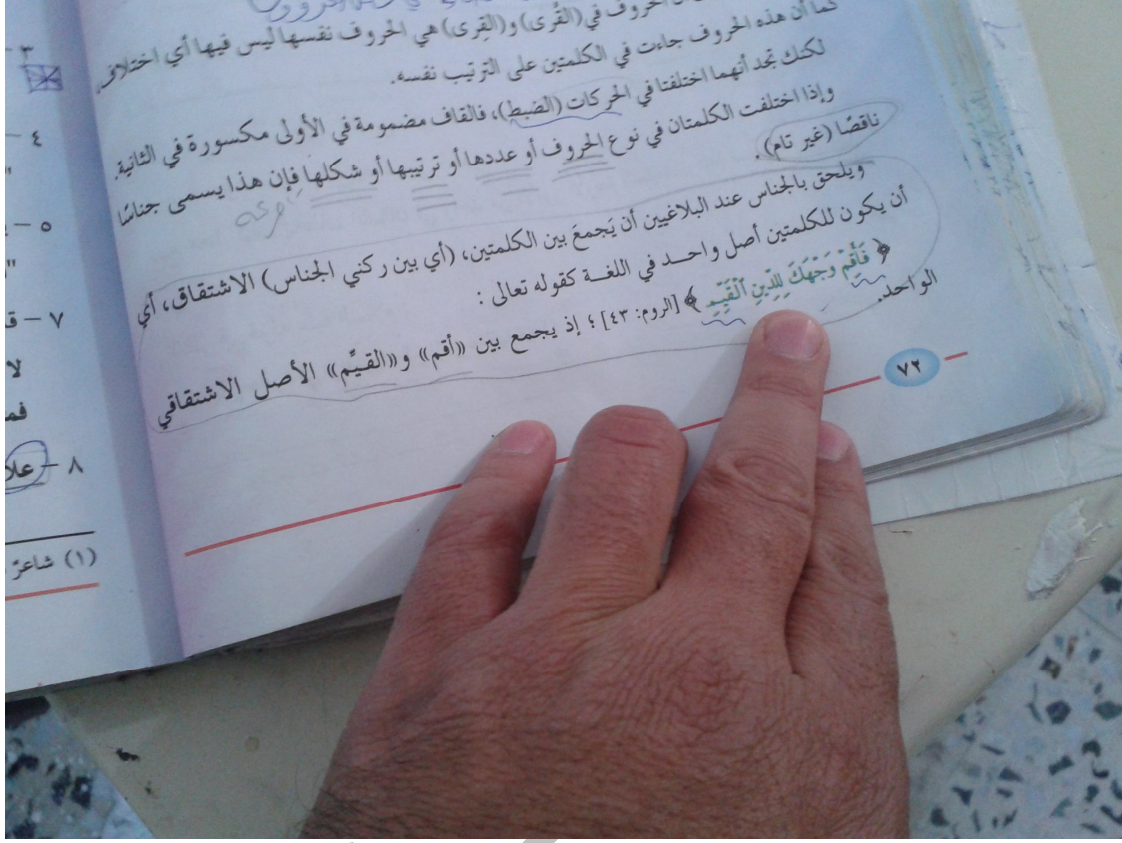 الحروف في (القُرى) و(القِرى) هي الحروف نفسها ليس فيها أي اختلاف.
كما أن هذه الحروف جاءت في الكلمتين على الترتيب نفسه.
لكنك تجد أنهما اختلفتا في الحركات (الضبط)، فالقاف مضمومة في الأولى مكسورة في الثانية.
وإذا اختلفت الكلمتان في نوع الحروف أو عددها أو ترتيبها أو شكلها فإن هذا يسمى جناسًا
ناقصًا (غير تام).
ويلحق بالجناس عند البلاغيين أن يَجمعَ بين الكلمتين، (أي بين ركني الجناس) الاشتقاق، أي
أن يكون للكلمتين أصل واحد في اللغة كقوله تعالى :
﴿ فَأَقِمْ وَجْهَكَ لِلدِّينِ ٱلْقَيِّمِ ﴾ [الروم: ٤٣] ؛ إذ يجمع بين «أقم» و«القيِّم» الأصل الاشتقاقي
الواحد.
٧٢
٣ –
٤ –
٥ –
٧ – ق
لا
فم
٨ – علا
(١) شاعرٌ